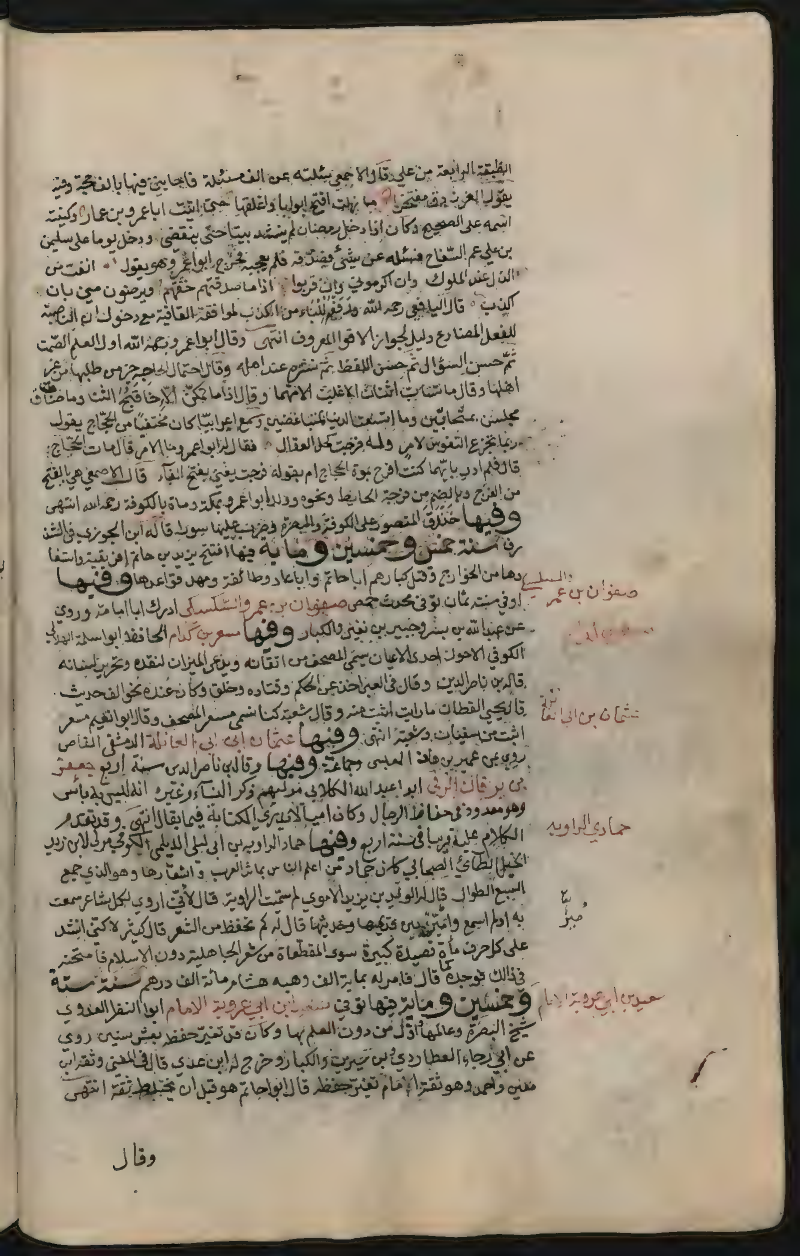 الطبقة الرابعة من علي وقال الاصمعي سئلته عن الف مسئلة فاجابني فيها بالف حجة وفيه
يقول الفرزدق مفتخرا ما زلت افتح ابوابا واغلقها حتى اتيت ابا عمرو بن عمار وكنيته
اسمه على الصحيح وكان اذا دخل رمضان لم ينشد بيتا حتى ينقضي ودخل يوما على سليمن
بن علي عم السفاح فسئله عن شيئ فصدقه فلم يعجبه فخرج ابوا عمرو وهو يقول انفت من
الذل عند الملوك وان اكرموني وان قربوا اذا ما صدقتهم خفتهم ويرضون مني بان
كذب قال اليافعي رحمه الله من الكذب لموافقة القافية مع دخول ان الناصبة
للفعل المضارع دليل لجواز الاقوا المعروف انتهى وقال ابوا عمرو رحمه الله اول العلم الصمت
ثم حسن السؤال ثم حسن اللفظ ثم نشره عند اهله وقال احتمال الحاجة خير من طلبها من غير
اهلها وقال ما تشاتم اثنان الا غلب الأمهما وقال اذا ما تمكن الاخا قبح الثنا وما ضاق
مجلس بمتحابين وما اتسعت الدنيا لمتباغضين وسمع اعرابيا كان مختفيا من الحجاج يقول
ربما تجزع النفوس لامر وله فرجت كحل العقال فقال له ابوا عمرو وما الامر قال مات الحجاج
قال فلم ادر بايهما كنت افرح بموة الحجاج ام بقوله فرجت يعني بفتح الفاء قال الاصمعي هي بالفتح
من الفرج وبالضم من فرجة الحايط ونحوه وولد ابوا عمرو بمكة ومات بالكوفة رحمه الله انتهى
وفيها خندق المنصور على الكوفة والبصرة وضرب عليها سورا قاله ابن الجوزي في الشذ
رة سنة خمس وخمسين وماية فيها افتتح يزيد بن حاتم افريقية واستعا
دها من الخوارج وقتل كبارهم ابا حاتم وابا عاد وطائفة ومهد قواعدها وفيها
او في سنة ثمان توفي محدث حمص صفوان بن عمرو السكسكي ادرك ابا امامة وروي
عن عبد الله بن بسر وجبير بن نفير والكبار وفيها مسعر بن كدام الحافظ ابوا سلمة الهلالي
الكوفي الاحول احدى الاعيان سمي المصحف من اتقانه ويدعى الميزان لنقده وتحرير لسانه
قاله بن ناصر الدين وقال في العبر اخذ عن الحكم وقتاده وخلق وكان عنده نحو الف حديث
قال يحيى القطان ما رايت اثبت منه وقال شعبة كنا نسمي مسعر المصحف وقال ابوا نعيم مسعر
اثبت من سفيان وشعبة انتهى وفيها عثمان ابن ابي العاتكة الدمشقي القاص
روي عن عمير بن هاني العبسي وجماعة وفيها وقال بن ناصر الدين سنة اربع جعفر
بن برقان الرقي ابوا عبد الله الكلابي مولاهم ذكر النساء وغيره انه ليس به باس
وهو معدود في حفاظ الرجال وكان اميا لا يدري الكتابة فيما يقال انتهى وقد تقدم
الكلام عليه قريبا في سنة اربع وفيها حماد الراويه بن ابي ليلى الديلمي الكوفي مولى لابن زيد
الخيل الطائي الصحابي كان حماد من اعلم الناس بماثر العرب واشعارها وهو الذي جمع
السبع الطوال قال له الوليد بن يزيد الاموي لم سميت الراوية قال لأني اروي لكل شاعر سمعت
به او لم اسمع واميز بين قديمها وحديثها قال له كم تحفظ من الشعر قال كثير لاكني انشد
على كل حرف ماة قصيدة كبيرة سوى المقطعاة من شعر الجاهلية دون الاسلام فامتحنه
في ذالك فوجده كما قال فامر له بماية الف وهبه هشام مائة الف درهم سنة ستة
وخمسين وماية فيها توفي سعيد ابن ابي عروبة الامام ابوا النضر العدوي
شيخ البصرة وعالمها اول من دون العلم بها وكان قد تغير حفظه بعشر سنين روي
عن ابي رجاء العطاردي وبن سيرين والكبار وخرج له ابن عدي قال في المغني وثقه ابن
معين واحمد وهو ثقة امام تغير حفظه قال ابوا حاتم هو قبل ان يختلط ثقة انتهى
وقال
صفوان بن عمر
عثمان بن ابي العا
حمادي الراويه
سعيد بن ابي عروبة الامام